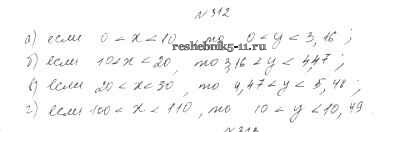 №312
а) если 0 < x < 10, то 0 < y < 3,16;
reshebnik5-11.ru
б) если 10 < x < 20, то 3,16 < y < 4,47;
в) если 20 < x < 30, то 4,47 < y < 5,48;
г) если 100 < x < 110, то 10 < y < 10,49.